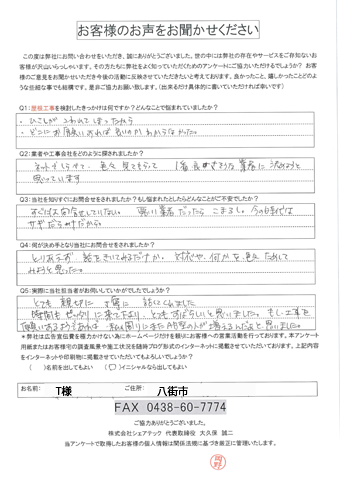 お客様のお声をお聞かせください
この度は弊社にお問い合わせをいただき、誠にありがとうございました。世の中には弊社の存在やサービスをご存知ないお
客様が沢山いらっしゃいます。その方たちに弊社をよく知っていただくためのアンケートにご協力いただけるでしょうか? お客
様のご意見をお聞かせいただき今後の活動に反映させていただきたいと考えております。良かったこと、嬉しかったことどのよ
うな些細な事でも結構です、是非ご協力お願い致します。(出来るだけ具体的に書いていただければ幸いです)
Q1:屋根工事を検討したきっかけは何ですか?どんなことで悩まれていましたか?
・ひさしが こわれてしまったから
・どこにお願いすれば良いのかわからなかった。
Q2:業者や工事会社をどのように探されましたか?
ネットでしらべて、色々 見てまわって 1番
業者に決めようと
思っています
Q3:当社を知りすぐにお問合せをされましたか?もし悩まれたとしたらどんなことがご不安でしたか?
すぐには
悪い業者だったら こまるし、今の時代は
サギだらけだから。
Q4:何が決め手となり当社にお問合せをされましたか?
とりあえず 話をきいてみる
対応や、何かを
みようと思った。
Q5:実際に当社担当者がお伺いしていかがでしたでしょうか?
とても 親切に 丁寧に 話してくれました
時間も ピッタリに来て下さり、とてもすばらしいと思いました。もし工事を
お願い
思いました。
※弊社は広告宣伝費を極力かけない為にホームページだけを頼りにお客様への営業活動を行っております。本アンケート
用紙またはお客様宅の調査風景や施工状況を随時ブログ形式のインターネットに掲載させていただいております。上記内容
をインターネットや印刷物に掲載させていただいてもよろしいでしょうか?
( )名前を出してもよい ( )イニシャルなら出してもよい
お名前: T様 ご住所: 八街市
FAX 0438-60-7774
ご協力ありがとうございました。
株式会社シェアテック 代表取締役 大久保 誠二
当アンケートで取得したお客様の個人情報は関係法規に基づき厳正に管理いたします。